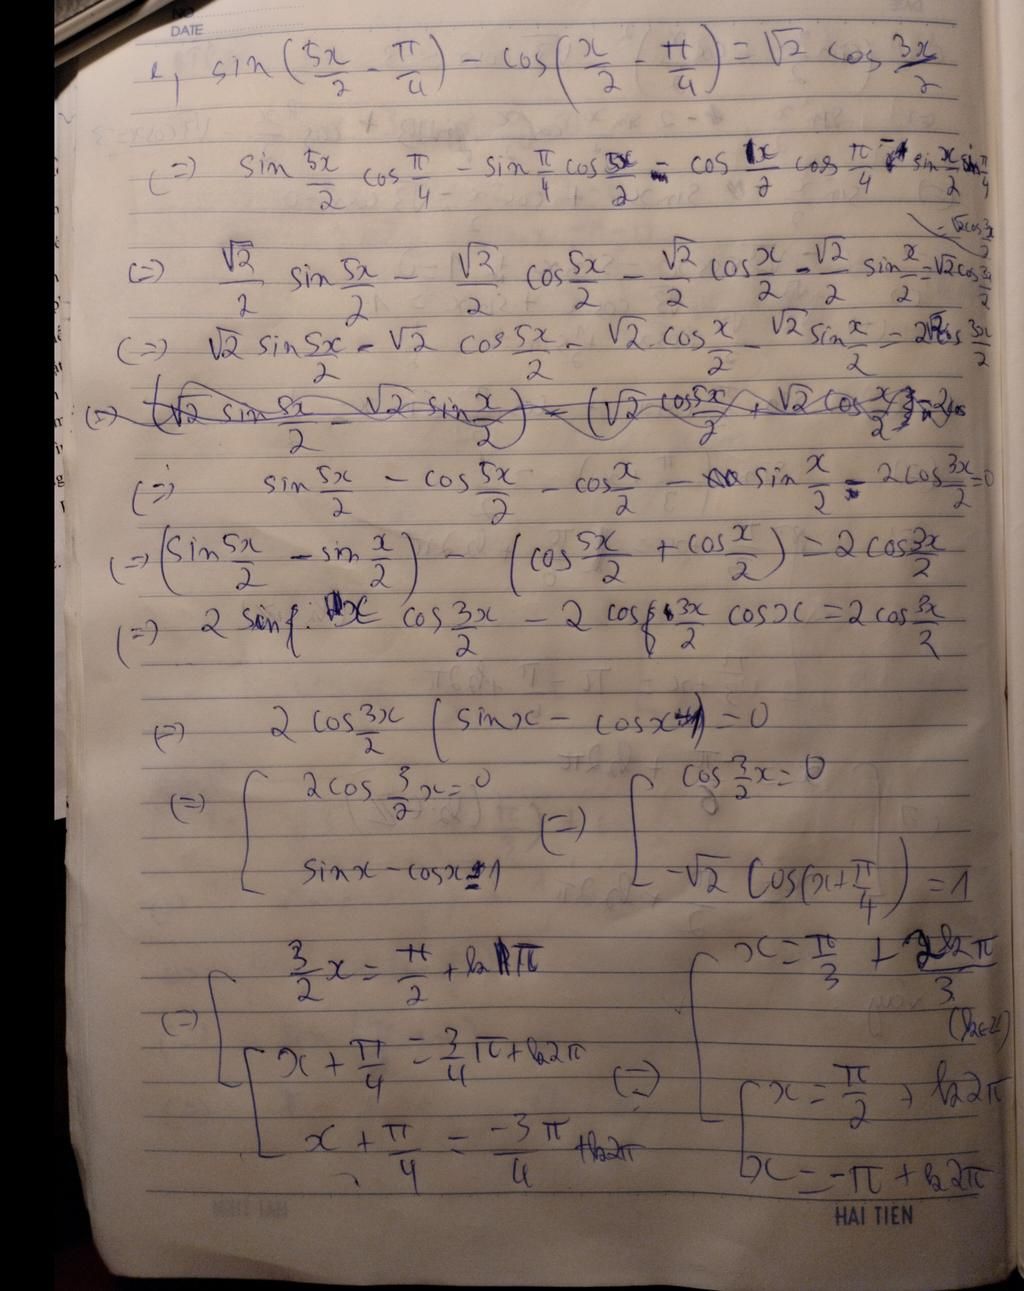 NO
DATE
e, sin(5x/2 - π/4) - cos(x/2 - π/4) = √2 cos 3x/2
(=) sin 5x/2 cos π/4 - sin π/4 cos 5x/2 - cos x/2 cos π/4 - sin x/2 sin π/4
= √2 cos 3x/2
(=) √2/2 sin 5x/2 - √2/2 cos 5x/2 - √2/2 cos x/2 - √2/2 sin x/2 = √2 cos 3x/2
(=) √2 sin 5x/2 - √2 cos 5x/2 - √2 cos x/2 - √2 sin x/2 = 2√2 cos 3x/2
(=) (√2 sin 5x/2 - √2 sin x/2) - (√2 cos 5x/2 + √2 cos x/2) = 2 cos
(=) sin 5x/2 - cos 5x/2 - cos x/2 - sin x/2 - 2 cos 3x/2 = 0
(=) (sin 5x/2 - sin x/2) - (cos 5x/2 + cos x/2) = 2 cos 3x/2
(=) 2 sin x cos 3x/2 - 2 cos 3x/2 cos x = 2 cos 3x/2
(=) 2 cos 3x/2 (sin x - cos x - 1) = 0
(=) [ 2 cos 3/2 x = 0 (=) [ cos 3/2 x = 0
sin x - cos x = 1 - √2 cos(x + π/4) = 1
(=) [ 3/2 x = π/2 + kπ [ x = π/3 + k2π/3
(k∈Z)
[ x + π/4 = 3/4 π + k2π (=) [ x = π/2 + k2π
x + π/4 = -3π/4 + k2π x = -π + k2π
HẢI TIẾN